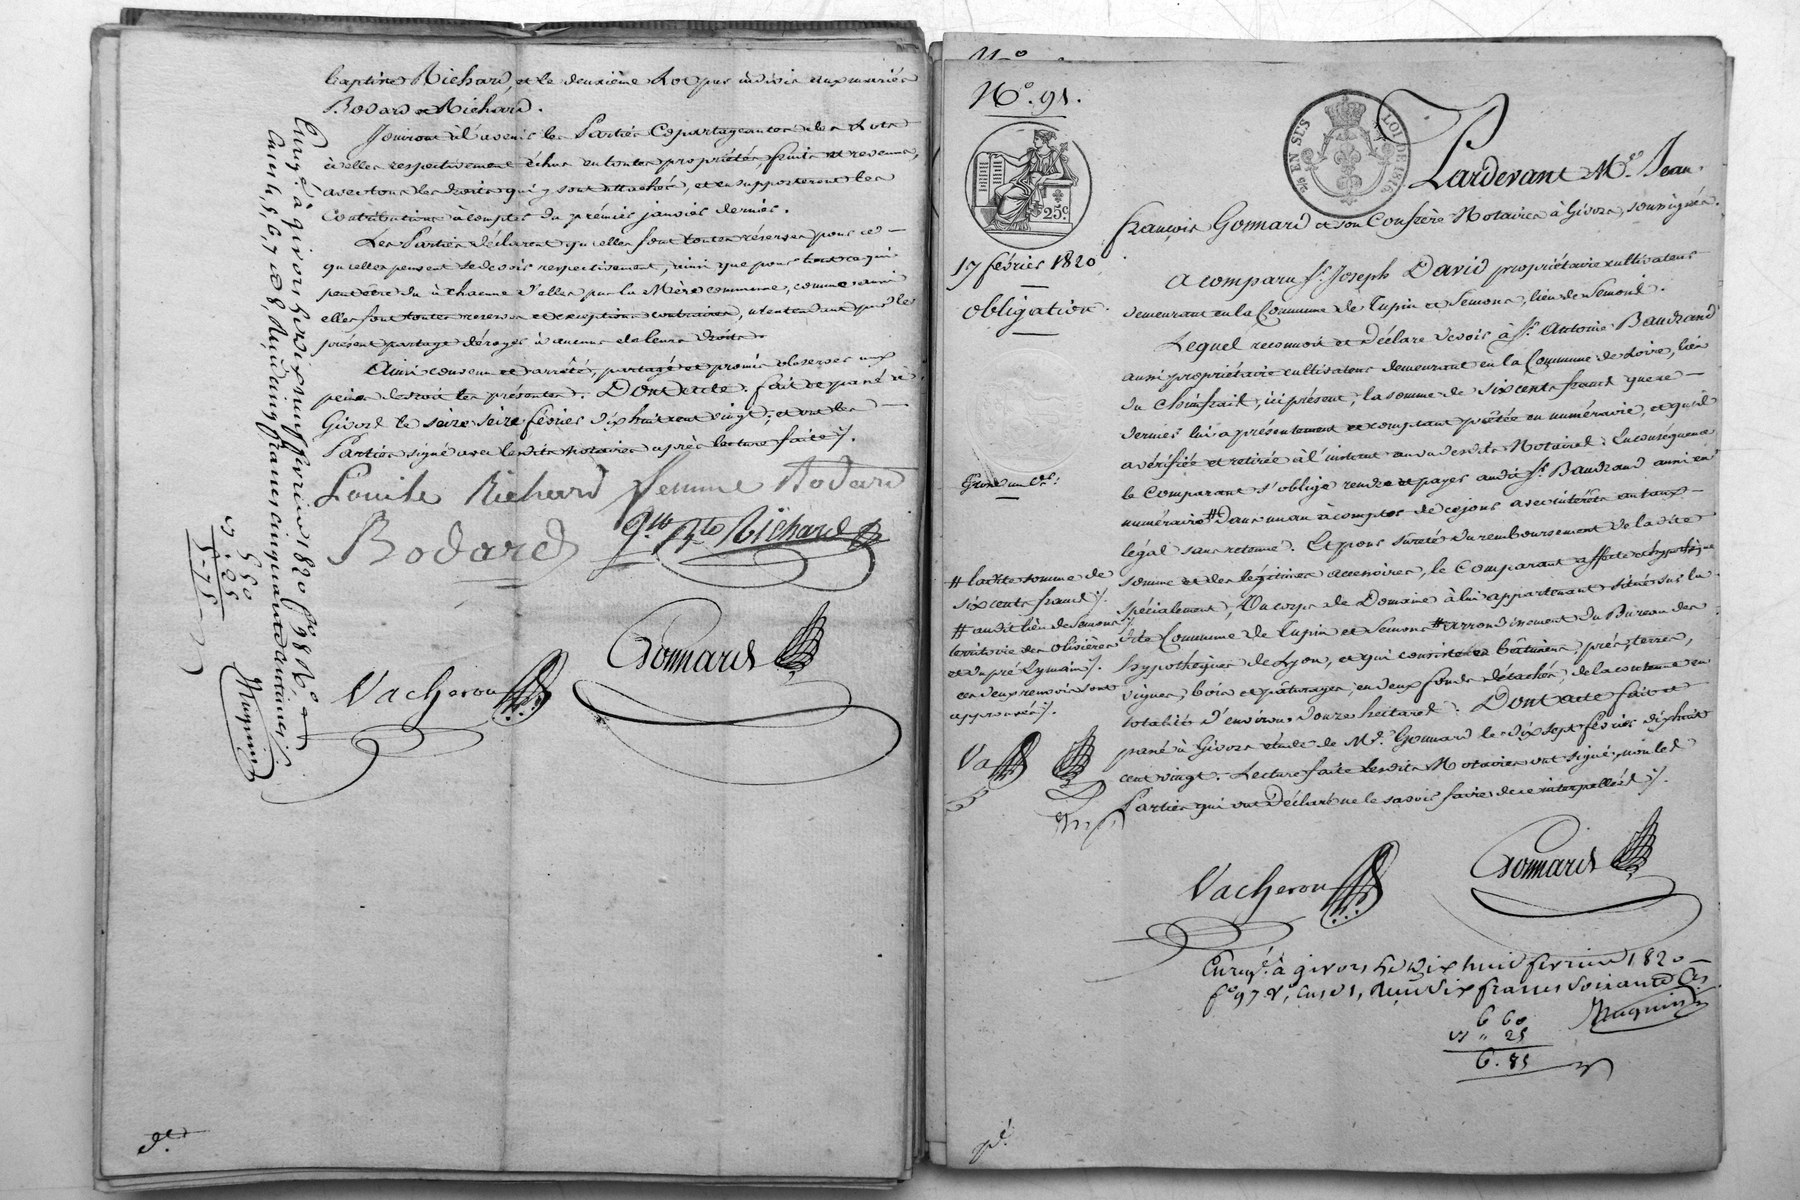 Baptiste Richard, et le deuxième Lot par indivis aux mariés
Bodard et Richard.
Jouiront à l'avenir les Parties Copartageantes des Lots
à elles respectivement échus en toutes propriétés, fruits et revenus,
avec tous les droits qui y sont attachés, et en supporteront les
Contributions à compter du premier janvier dernier.
Les Parties déclarent qu'elles font toutes réserves pour ce
qu'elles pensent se devoir respectivement, ainsi que pour tout ce qui
peut être dû à chacune d'elles par la Mère commune, comme aussi
elles font toutes réserves et exceptions contraires, n'entendant par le
présent partage déroger à aucuns de leurs droits.
Ainsi convenu et arrêté, partagé et promis observer aux
peines de droit les présentes. Dont acte: fait et passé à
Givors le seize février dix huit cent vingt; et ont les
Parties signé avec lesdits Notaires après lecture faite.
Louise Richard femme Bodard
Bodard
J. Bte Richard
Gonnard
Vacheron
Enreg.é à givors le dix neuf février 1820 f.o 98 R.o
Cases 4, 5, 6, 7 et 8, Reçu cinq francs cinquante centimes
5 50
" 25
5 - 75
Muguin
N.o 91.
25c
% EN SUS
LOI DE 1816
17 février 1820
Obligation
Pardevant M.es Jean
François Gonnard et son Confrère Notaires à Givors, soussignés.
A comparu S.r Joseph David propriétaire cultivateur
demeurant en la Commune de Tupin et Semons, lieu de Semons.
Lequel reconnoit et Déclare devoir à S.r Antoine Baudrand
aussi propriétaire cultivateur demeurant en la Commune de Loire, lieu
du Chinfrait, ici présent, la somme de six cents francs que ce
dernier lui a présentement et comptant prêtée en numéraire, et qu'il
a vérifiée et retirée à l'instant au vu desdits Notaires: En conséquence
le Comparant s'oblige rendre et payer audit S.r Baudrand aussi en
numéraire # Dans un an à compter de ce jour avec intérêts au taux
légal sans retenue. Et pour sûreté du remboursement de ladite
somme et des légitimes accessoires, le Comparant affecte et hypothèque
spécialement, Un corps de Domaine à lui appartenant situé sur la
dite Commune de Tupin et Semons # arrondissement du Bureau des
hypothèques de Lyon, et qui consiste en bâtiments, prés, terres,
vignes, bois et pâturages, en deux fonds détachés, de la contenue en
totalité d'environ douze hectares. Dont acte fait et
passé à Givors étude de M.e Gonnard le dix sept février dix huit
cent vingt. Lecture faite lesdits Notaires ont signé, non les
Parties qui ont Déclaré ne le savoir faire de ce interpellées.
# ladite somme de
six cents francs.
# audit lieu de Semons
territoire des Olivières
et du pré Lymain.
ces deux renvois sont
approuvés.
Va
Vacheron
Gonnard
Enreg.é à givors le dix huit février 1820
f.o 97 v.o, Case 1, Reçu six francs soixante C.es
6 60
" 25
6. 85
Muguin